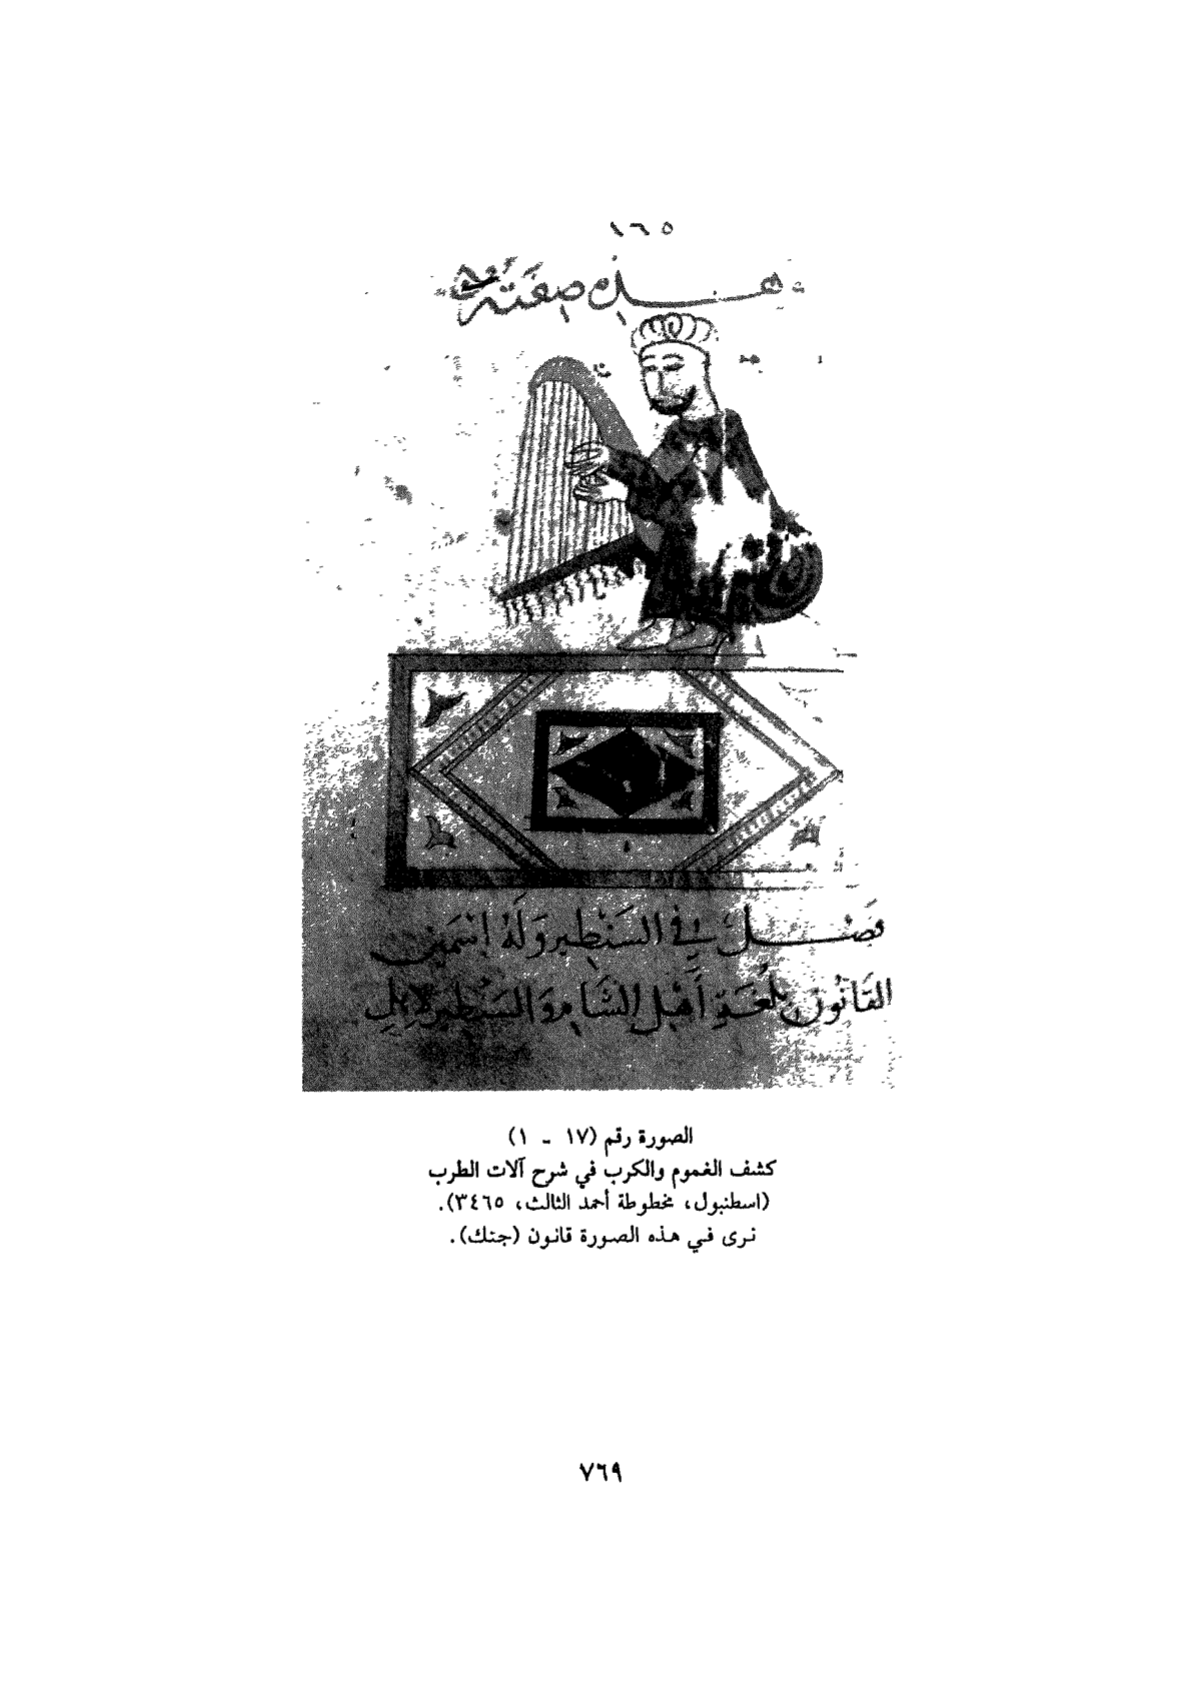 ١٦٥
هذه صفته
فَصْلٌ فِي السَنْطِير وَلَهُ إسْمَين
القَانُون بِلُغَةِ أَهْلِ الشَّامِ وَالسَنْطِير لِاهلِ
الصورة رقم (١٧ - ١)
كشف الغموم والكرب في شرح آلات الطرب
(اسطنبول، مخطوطة أحمد الثالث، ٣٤٦٥).
نرى في هذه الصورة قانون (جنك).
٧٦٩